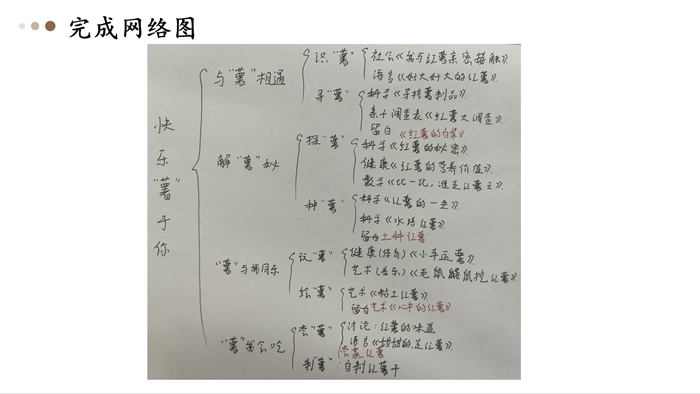 完成网络图
快乐“薯”于你
与“薯”相遇
识“薯”
社会《我与红薯亲密接触》
语言《好大好大的红薯》
寻“薯”
科学《寻找薯制品》
亲子调查表《红薯大调查》
留白《红薯的自述》
解“薯”秘
探“薯”
科学《红薯的秘密》
健康《红薯的营养价值》
数学《比一比,谁是红薯王》
种“薯”
科学《红薯的一生》
科学《水培红薯》
留白土种红薯
“薯”与我同乐
玩“薯”
健康(体育)《小手运薯》
艺术(音乐)《老鼠鼹鼠挖红薯》
绘“薯”
艺术《粘土红薯》
留白艺术《心中的红薯》
“薯”我会吃
尝“薯”
讨论:红薯的味道
语言《甜甜的红薯》
蒸红薯
制“薯”:自制红薯干